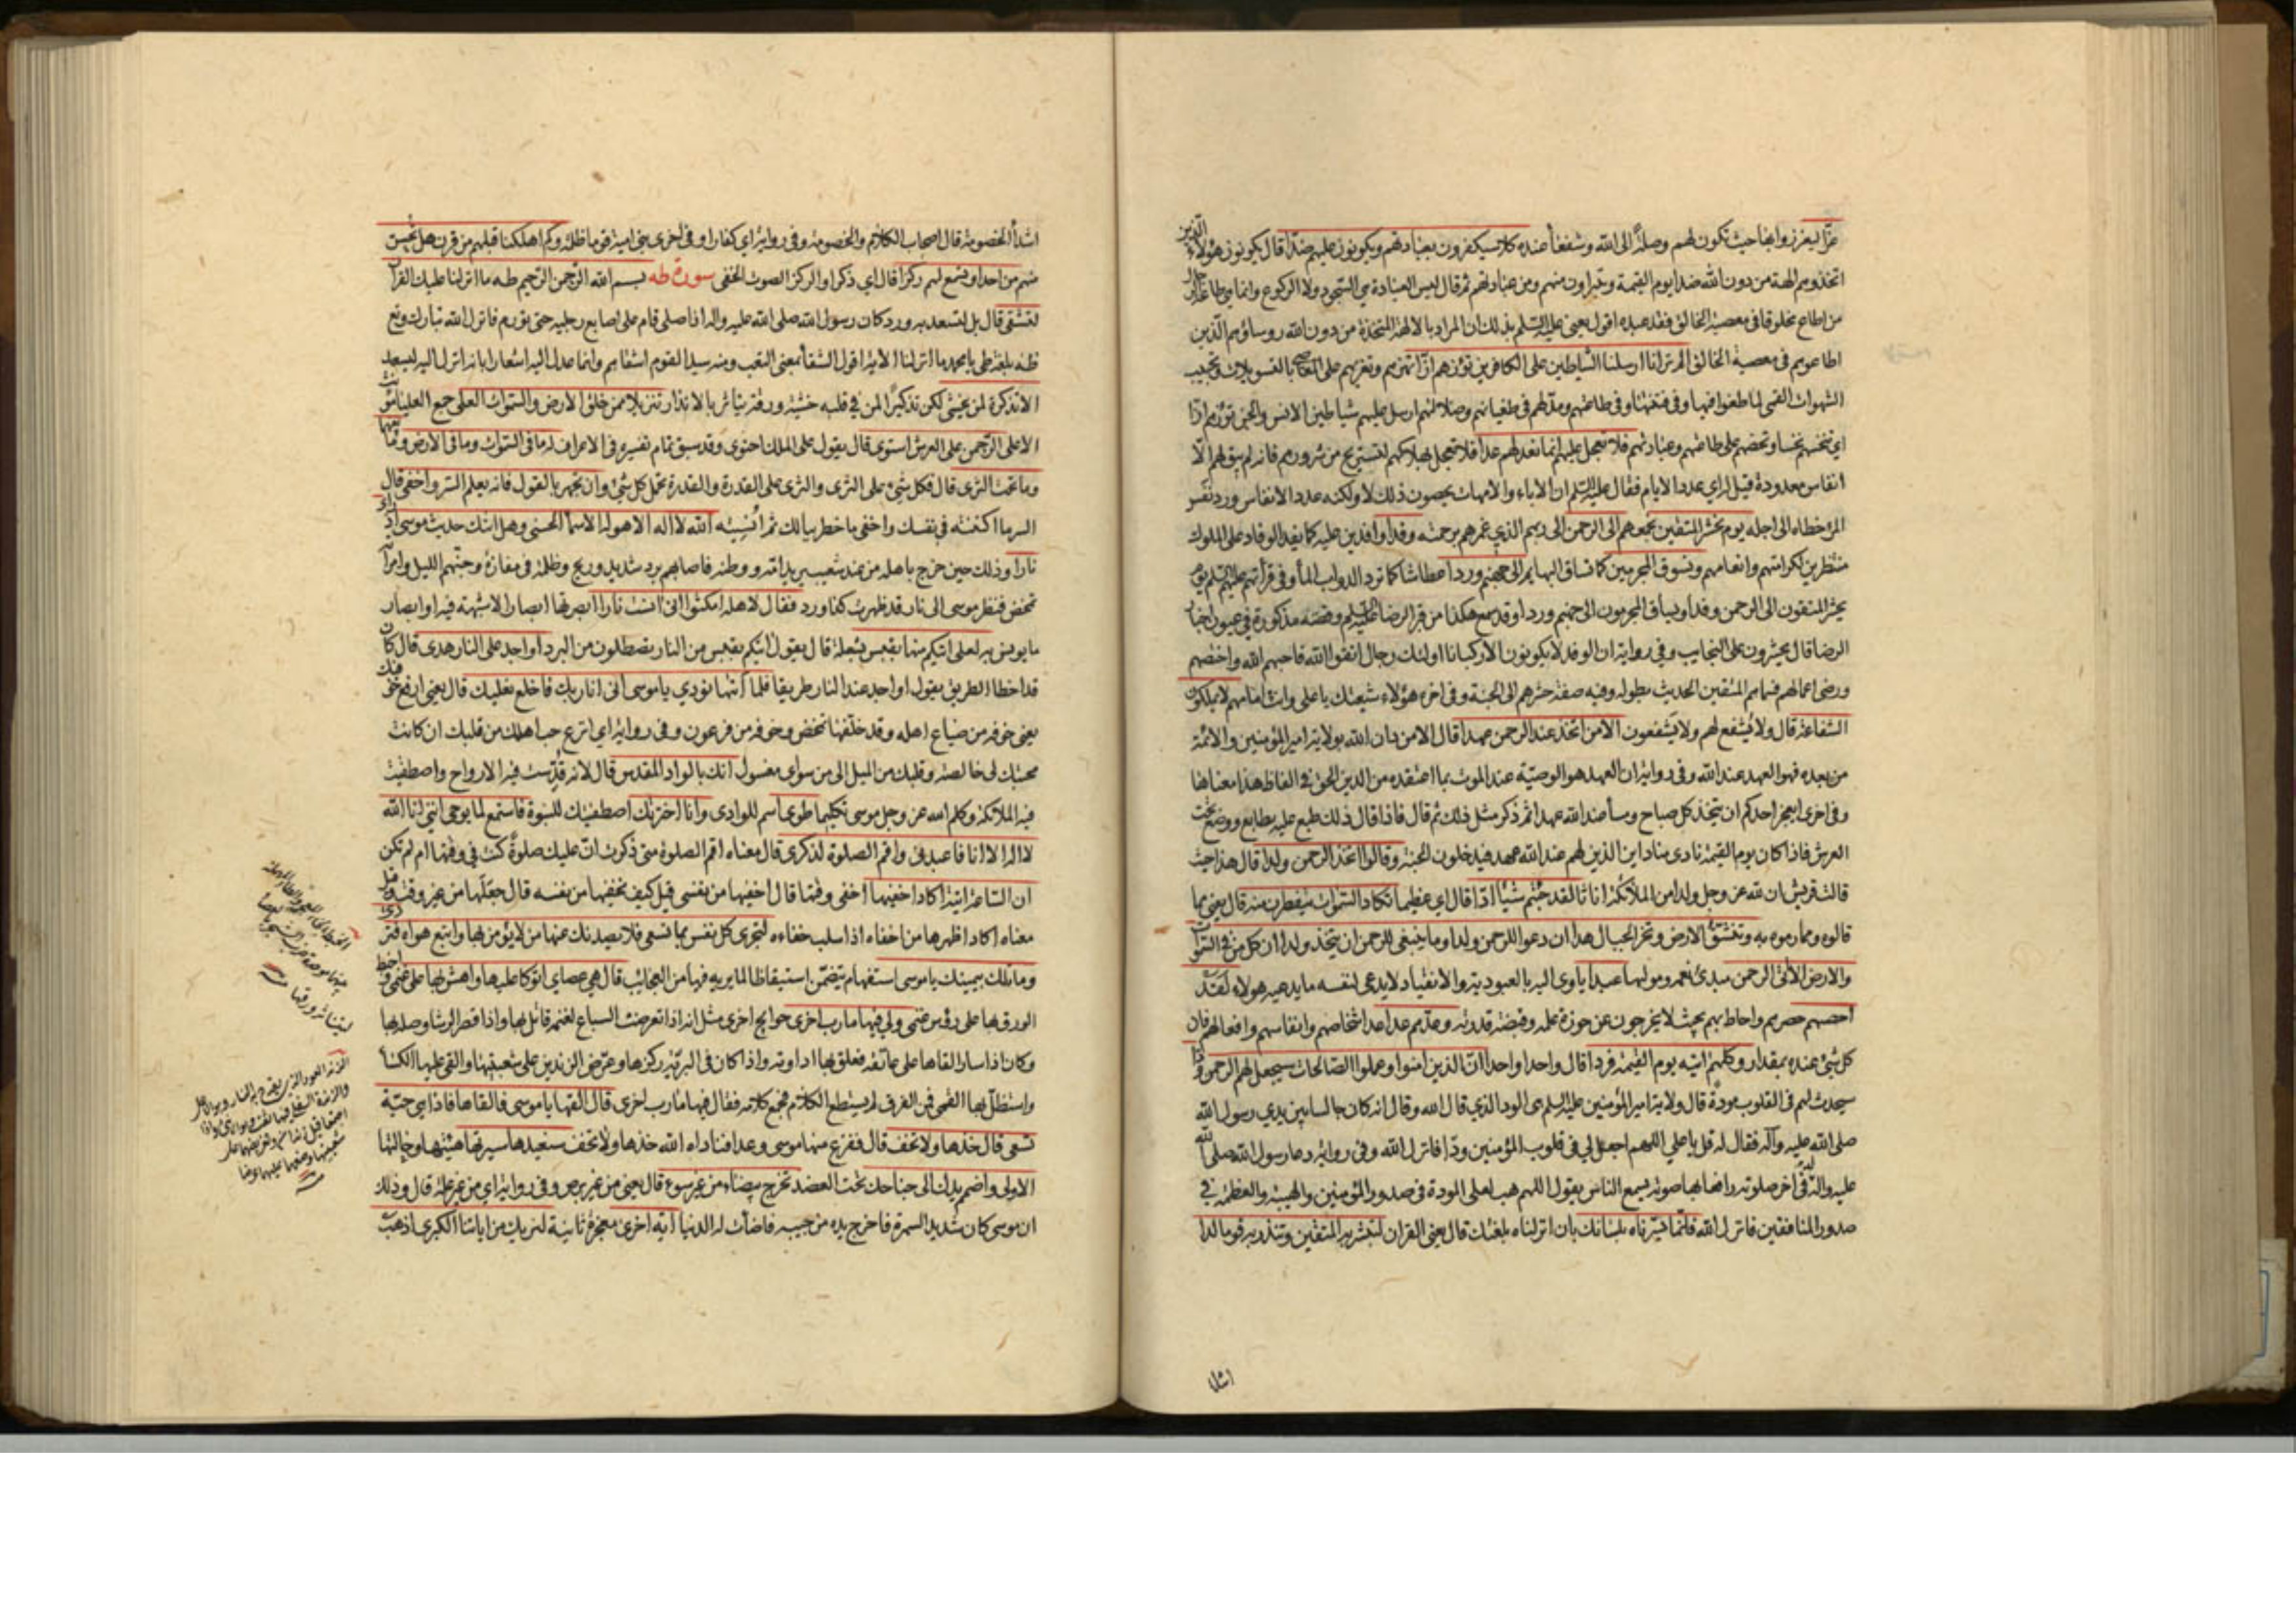 عزّا ليعززوا بها حيث تكون لهم وصلة الى الله وشفعاء عنده كلا سيكفرون بعبادتهم ويكونون عليهم ضدّا قال يكونون هؤلاء الّذين
اتخذوهم الهة من دون الله ضدا يوم القيمة ويتبراون منهم ومن عبادتهم ثم قال ليس العبادة هي السّجود ولا الركوع وانما هي طاعة الرجال
من اطاع مخلوقا في معصية الخالق فقد عبده اقول يعنى عليه السّلم بذلك ان المراد بالالهة المتخذة من دون الله رؤساؤهم الّذين
اطاعوهم في معصية الخالق الم تر انا ارسلنا الشّياطين على الكافرين تؤزهم ازّا تهزهم وتغريهم على المعاصى بالتسويلات وتحبيب
الشهوات القمى لما طغوا فيها وفي فتنتها وفي طاعتهم ومدّ لهم في طغيانهم وضلالتهم ارسل عليهم شياطين الانس والجن تؤزهم ازّا
اي تنخسهم نخسا وتحضهم على طاعتهم وعبادتهم فلا تعجل عليهم انما نعد لهم عدا فلا تعجل بهلاكهم لتستريح من شرورهم فانه لم يبق لهم الّا
انفاس معدودة قيل اي عدد الايام فقال عليه السّلم ان الاباء والامهات يحصون ذلك لا ولكنه عدد الانفاس ورد نفس
المرء خطاه الى اجله يوم نحشر المتقين نجمعهم الى الرحمن الى ربهم الذي غمرهم برحمته وفدا وافدين عليه كما يفد الوفاد على الملوك
منتظرين لكرامتهم وانعامهم ونسوق المجرمين كما تساق البهايم الى جهنم وردا عطاشا كما ترد الدواب الماء وفي قرائتهم عليهم السّلم يوم
يحشر المتقون الى الرحمن وفدا ويساق المجرمون الى جهنم وردا وقد سمع هكذا من قبر الرضا عليه السّلم وقصته مذكورة في عيون اخبار
الرضا قال يحشرون على النجايب وفي رواية ان الوفد لا يكونون الا ركبانا اولئك رجال اتقوا الله فاحبهم الله واختصهم
ورضى اعمالهم فسماهم المتقين الحديث بطوله وفيه صفة حشرهم الى الجنة وفي اخره هؤلاء شيعتك يا على وانت امامهم لا يملكون
الشفاعة قال ولا يُشفع لهم ولا يَشفعون الا من اتخذ عند الرحمن عهدا قال الا من دان الله بولاية امير المؤمنين والائمة
من بعده فهو العهد عند الله وفي رواية ان العهد هو الوصيّة عند الموت بما اعتقده من الدين الحق في الفاظ هذا معناها
وفي اخرى ايعجز احدكم ان يتخذ كل صباح ومساء عند الله عهدا ثم ذكر مثل ذلك ثم قال فاذا قال ذلك طبع عليه بطابع ووضع تحت
العرش فاذا كان يوم القيمة نادى مناد اين الذين لهم عند الله عهد فيدخلون الجنة وقالوا اتخذ الرحمن ولدا قال هذا حيث
قالت قريش ان لله عز وجل ولدا من الملائكة اناثا لقد جئتم شيئا ادّا قال اي عظيما تكاد السّموات يتفطرن منه قال يعنى مما
قالوه ومما رموه به وتنشقّ الارض وتخر الجبال هدا ان دعوا للرحمن ولدا وما ينبغى للرحمن ان يتخذ ولدا ان كل من في السّموات
والارض الا اتى الرحمن عبدا
احصيهم حصرهم واحاط بهم بحيث لا يخرجون عن حوزة علمه وقبضة قدرته وعدّهم عدا عد اشخاصهم وانفاسهم وافعالهم فان
كل شيء عنده بمقدار وكلهم اتيه يوم القيمة فردا قال واحدا واحدا انّ الذين امنوا وعملوا الصّالحات سيجعل لهم الرحمن ودّا
سيحدث لهم في القلوب مودة قال ولاية امير المؤمنين عليه السلم هى الود الذي قال الله وقال انه كان جالسا بين يدي رسول الله
صلى الله عليه وآله فقال له قل يا على اللهم اجعل لي في قلوب المؤمنين ودّا فانزل الله وفي رواية دعا رسول الله صلى الله
عليه واله في اخر صلوته رافعا بها صوته يسمع الناس يقول اللهم هب لعلى المودة في صدور المؤمنين والهيبة والعظمة في
صدور المنافقين فانزل الله فانّما يسّرناه بلسانك بان انزلناه بلغتك قال يعنى القران لتبشر به المتقين وتنذر به قوما لدا
اشداء الخصومة قال اصحاب الكلام والخصومة وفي رواية اي كفارا وفي اخرى بنى امية قوما ظلمة وكم اهلكنا قبلهم من قرن هل تحس
منهم من احد او تسمع لهم ركزا قال اي ذكرا والركز الصوت الخفى سورة طه بسم الله الرّحمن الرّحيم طه ما انزلنا عليك القرآن
لتشقى قال بل لتسعد به ورد كان رسول الله صلى الله عليه واله اذا صلى قام على اصابع رجليه حتى تورم فانزل الله تبارك وتع
طه بلغة طى يا محمد ما انزلنا الاية اقول الشقاء بمعنى التعب ومنه سيد القوم اشقاهم وانما عدل اليه اشعارا بانه انزل اليه ليسعد
الا تذكرة لمن يخشى لكن تذكيرًا لمن في قلبه خشية ورقة يتاثر بالانذار تنزيلا ممن خلق الارض والسّموات العلى جمع العليا مؤنث
الاعلى الرّحمن على العرش استوى قال يقول على الملك احتوى وقد سبق تمام تفسيره في الاعراف له ما في السّموات وما في الارض وما بينهما
وما تحت الثرى قال فكل شيء على الثرى والثرى على القدرة والقدرة تحمل كل شيء وان تجهر بالقول فانه يعلم السّر واخفى قال
السر ما اكننته في نفسك واخفى ما خطر ببالك ثم اُنسيته الله لا اله الا هو له الاسماء الحسنى وهل اتيك حديث موسى اذ راى
نارا وذلك حين خرج باهله من عند شعيب
تمخض فنظر موسى الى نار قد ظهرت كذا ورد فقال لاهله امكثوا انى انست نارا ابصرتها ابصارا لا شبهة فيه او ابصار
ما يونس به لعلى اتيكم منها بقبس بشعلة قال يقول اتيكم بقبس من النار تصطلون من البرد او اجد على النار هدى قال كان
قد اخطا الطريق يقول او اجد عند النار طريقا فلما اتيها نودي يا موسى انى انا ربك فاخلع نعليك قال يعنى ارفع خوفيك
يعنى خوفه من ضياع اهله وقد خلفها تمخض وخوفه من فرعون وفي رواية اي انزع حب اهلك من قلبك ان كانت
محبتك لى خالصة وقلبك من الميل الى من سواى مغسول انك بالواد المقدس قال لانه قدّست فيه الارواح واصطفيت
فيه الملائكة وكلم الله عز وجل موسى تكليما طوى اسم للوادى وانا اخترتك اصطفيتك للنبوة فاستمع لما يوحى اننى انا الله
لا اله الا انا فاعبدنى واقم الصلوة لذكرى قال معناه اقم الصلوة متى ذكرت انّ عليك صلوةً كنت في وقتها ام لم تكن
ان السّاعة اتية اكاد اخفيها اخفى وقتها قال اخفيها من نفسى قيل كيف يخفيها من نفسه قال جعلها من غير وقت وقيل
معناه اكاد اظهرها من اخفاه اذا سلب خفاءه لتجزى كل نفس بما تسعى فلا يصدنك عنها من لا يؤمن بها واتبع هواه فتردى
وما تلك بيمينك يا موسى استفهام يتضمّن استيقاظا لما يريه فيها من العجائب قال هي عصاي اتوكا عليها واهش بها على غنمى واخبط
الورق بها على رؤس غنمى ولى فيها مارب اخرى حوايج اخرى مثل انه اذا تعرضت السباع لغنمه قاتل بها واذا قصر الرشا وصله بها
وكان اذا سار القاها على عاتقه فعلق بها اداوته واذا كان في البرّية ركزها وعرّض الزندين على شعبتيها والقى عليها الكساء
واستظلّ بها القمى فمن الفرق لم يستطع الكلام فجمع كلامه فقال فيها مارب اخرى قال القها يا موسى فالقاها فاذا هي حيّة
تسعى قال خذها ولا تخف قال ففزع منها موسى وعدا فناداه الله خذها ولا تخف سنعيدها سيرتها هيئتها وحالتها
الاولى واضمم يدك الى جناحك تحت العضد تخرج بيضاء من غير سوء قال يعنى من غير برص وفي رواية اي من غير علة قال وذلك
ان موسى كان شديد السمرة فاخرج يده من جيبه فاضاءت له الدنيا اية اخرى معجزة ثانية لنريك من اياتنا الكبرى اذهب